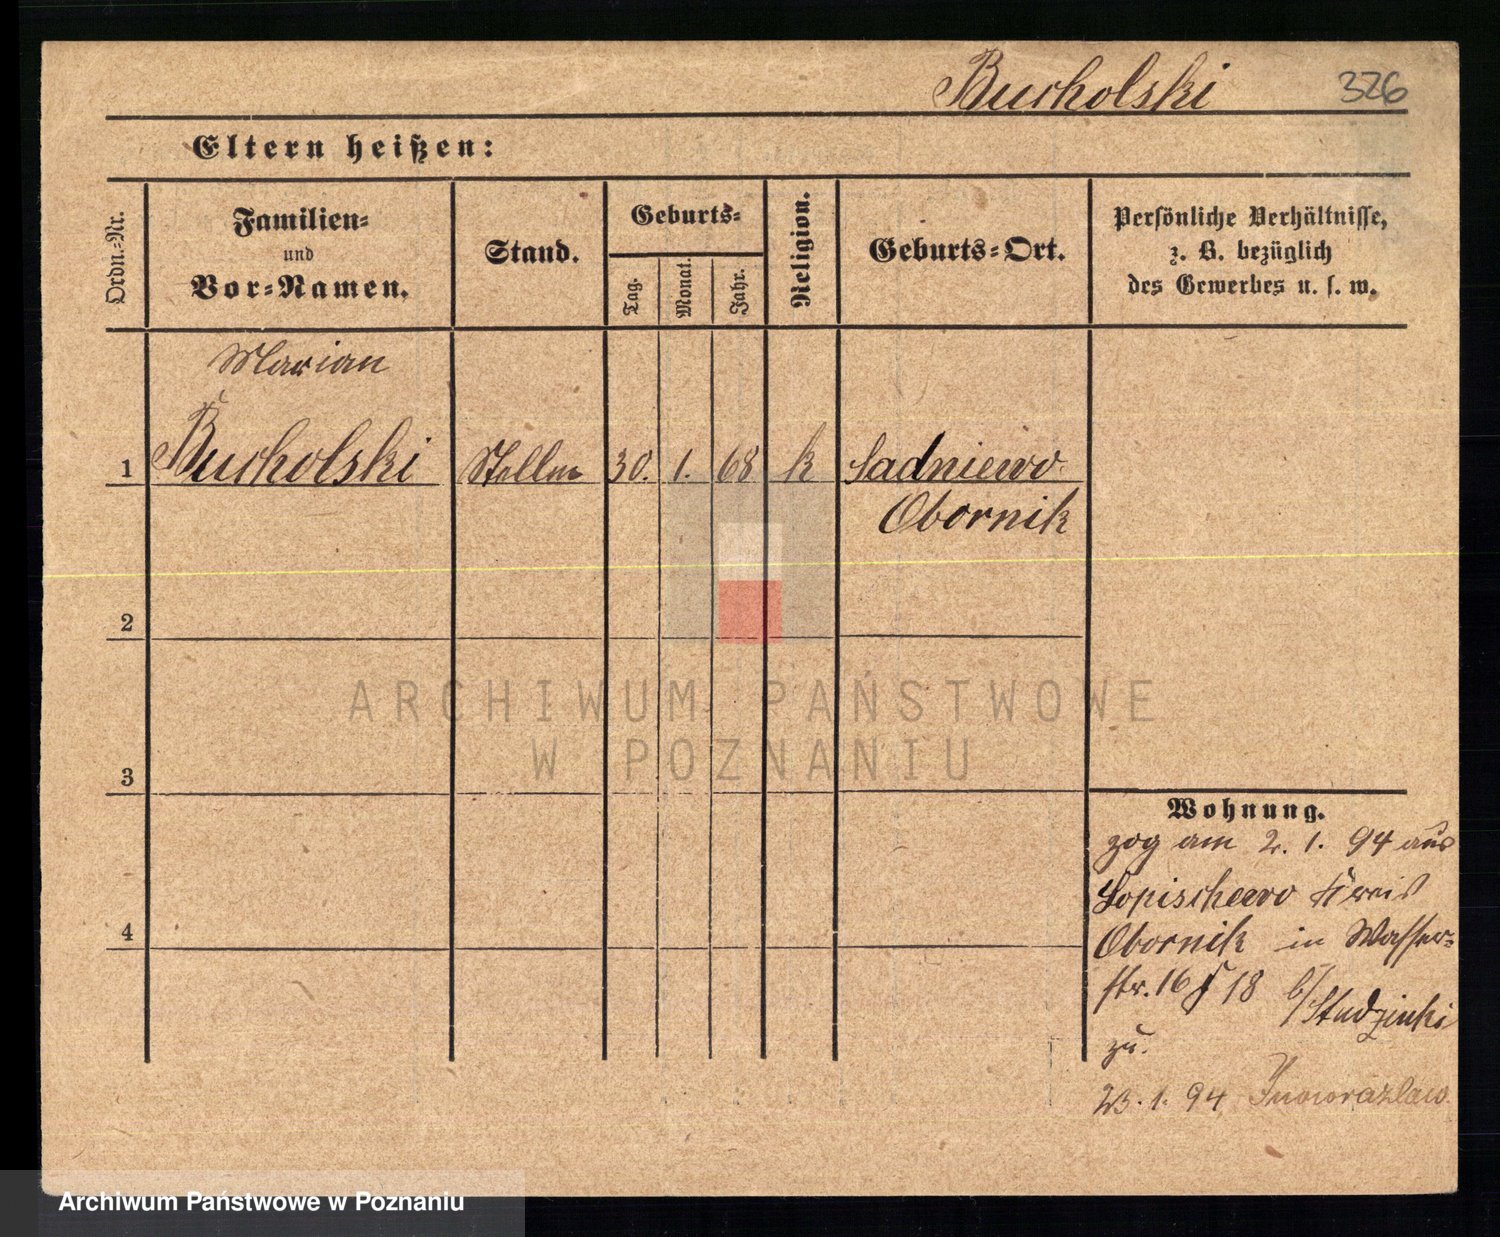 Bucholski 326
Eltern heißen:
Ordn.-Nr.
Familien-
und
Vor-Namen.
Stand.
Geburts-
Tag.
Monat.
Jahr.
Religion.
Geburts-Ort.
Persönliche Verhältnisse,
z. B. bezüglich
des Gewerbes u. s. w.
Marian
1 Bucholski Stellm 30. 1. 68 k Sadniewo
Obornik
2
3
4
Wohnung.
zog am 2. 1. 94 aus
Lopischewo Kreis
Obornik in Wasser-
str. 16 18 b/Studzinski
zu.
23. 1. 94 Inowrazlaw.
ARCHIWUM PAŃSTWOWE
W POZNANIU
Archiwum Państwowe w Poznaniu